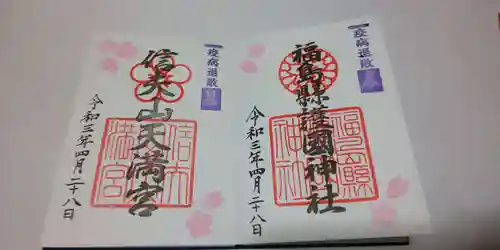 疫病退散
福島縣護國神社
令和三年四月二十八日
疫病退散
信夫山天満宮
令和三年四月二十八日